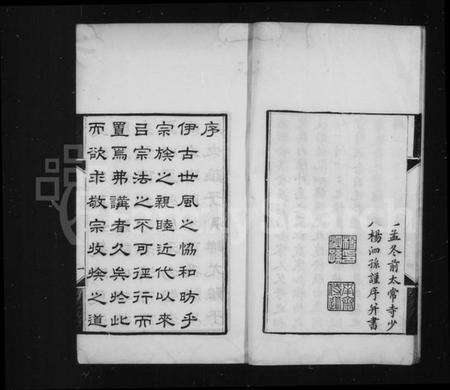 孟冬前太常寺少
楊泗孫謹序并書
序
伊古世風之協和昉乎
宗族之親睦近代以來
㠯宗法之不可徑行而
置焉弗講者久矣於此
而欲求敬宗收族之道